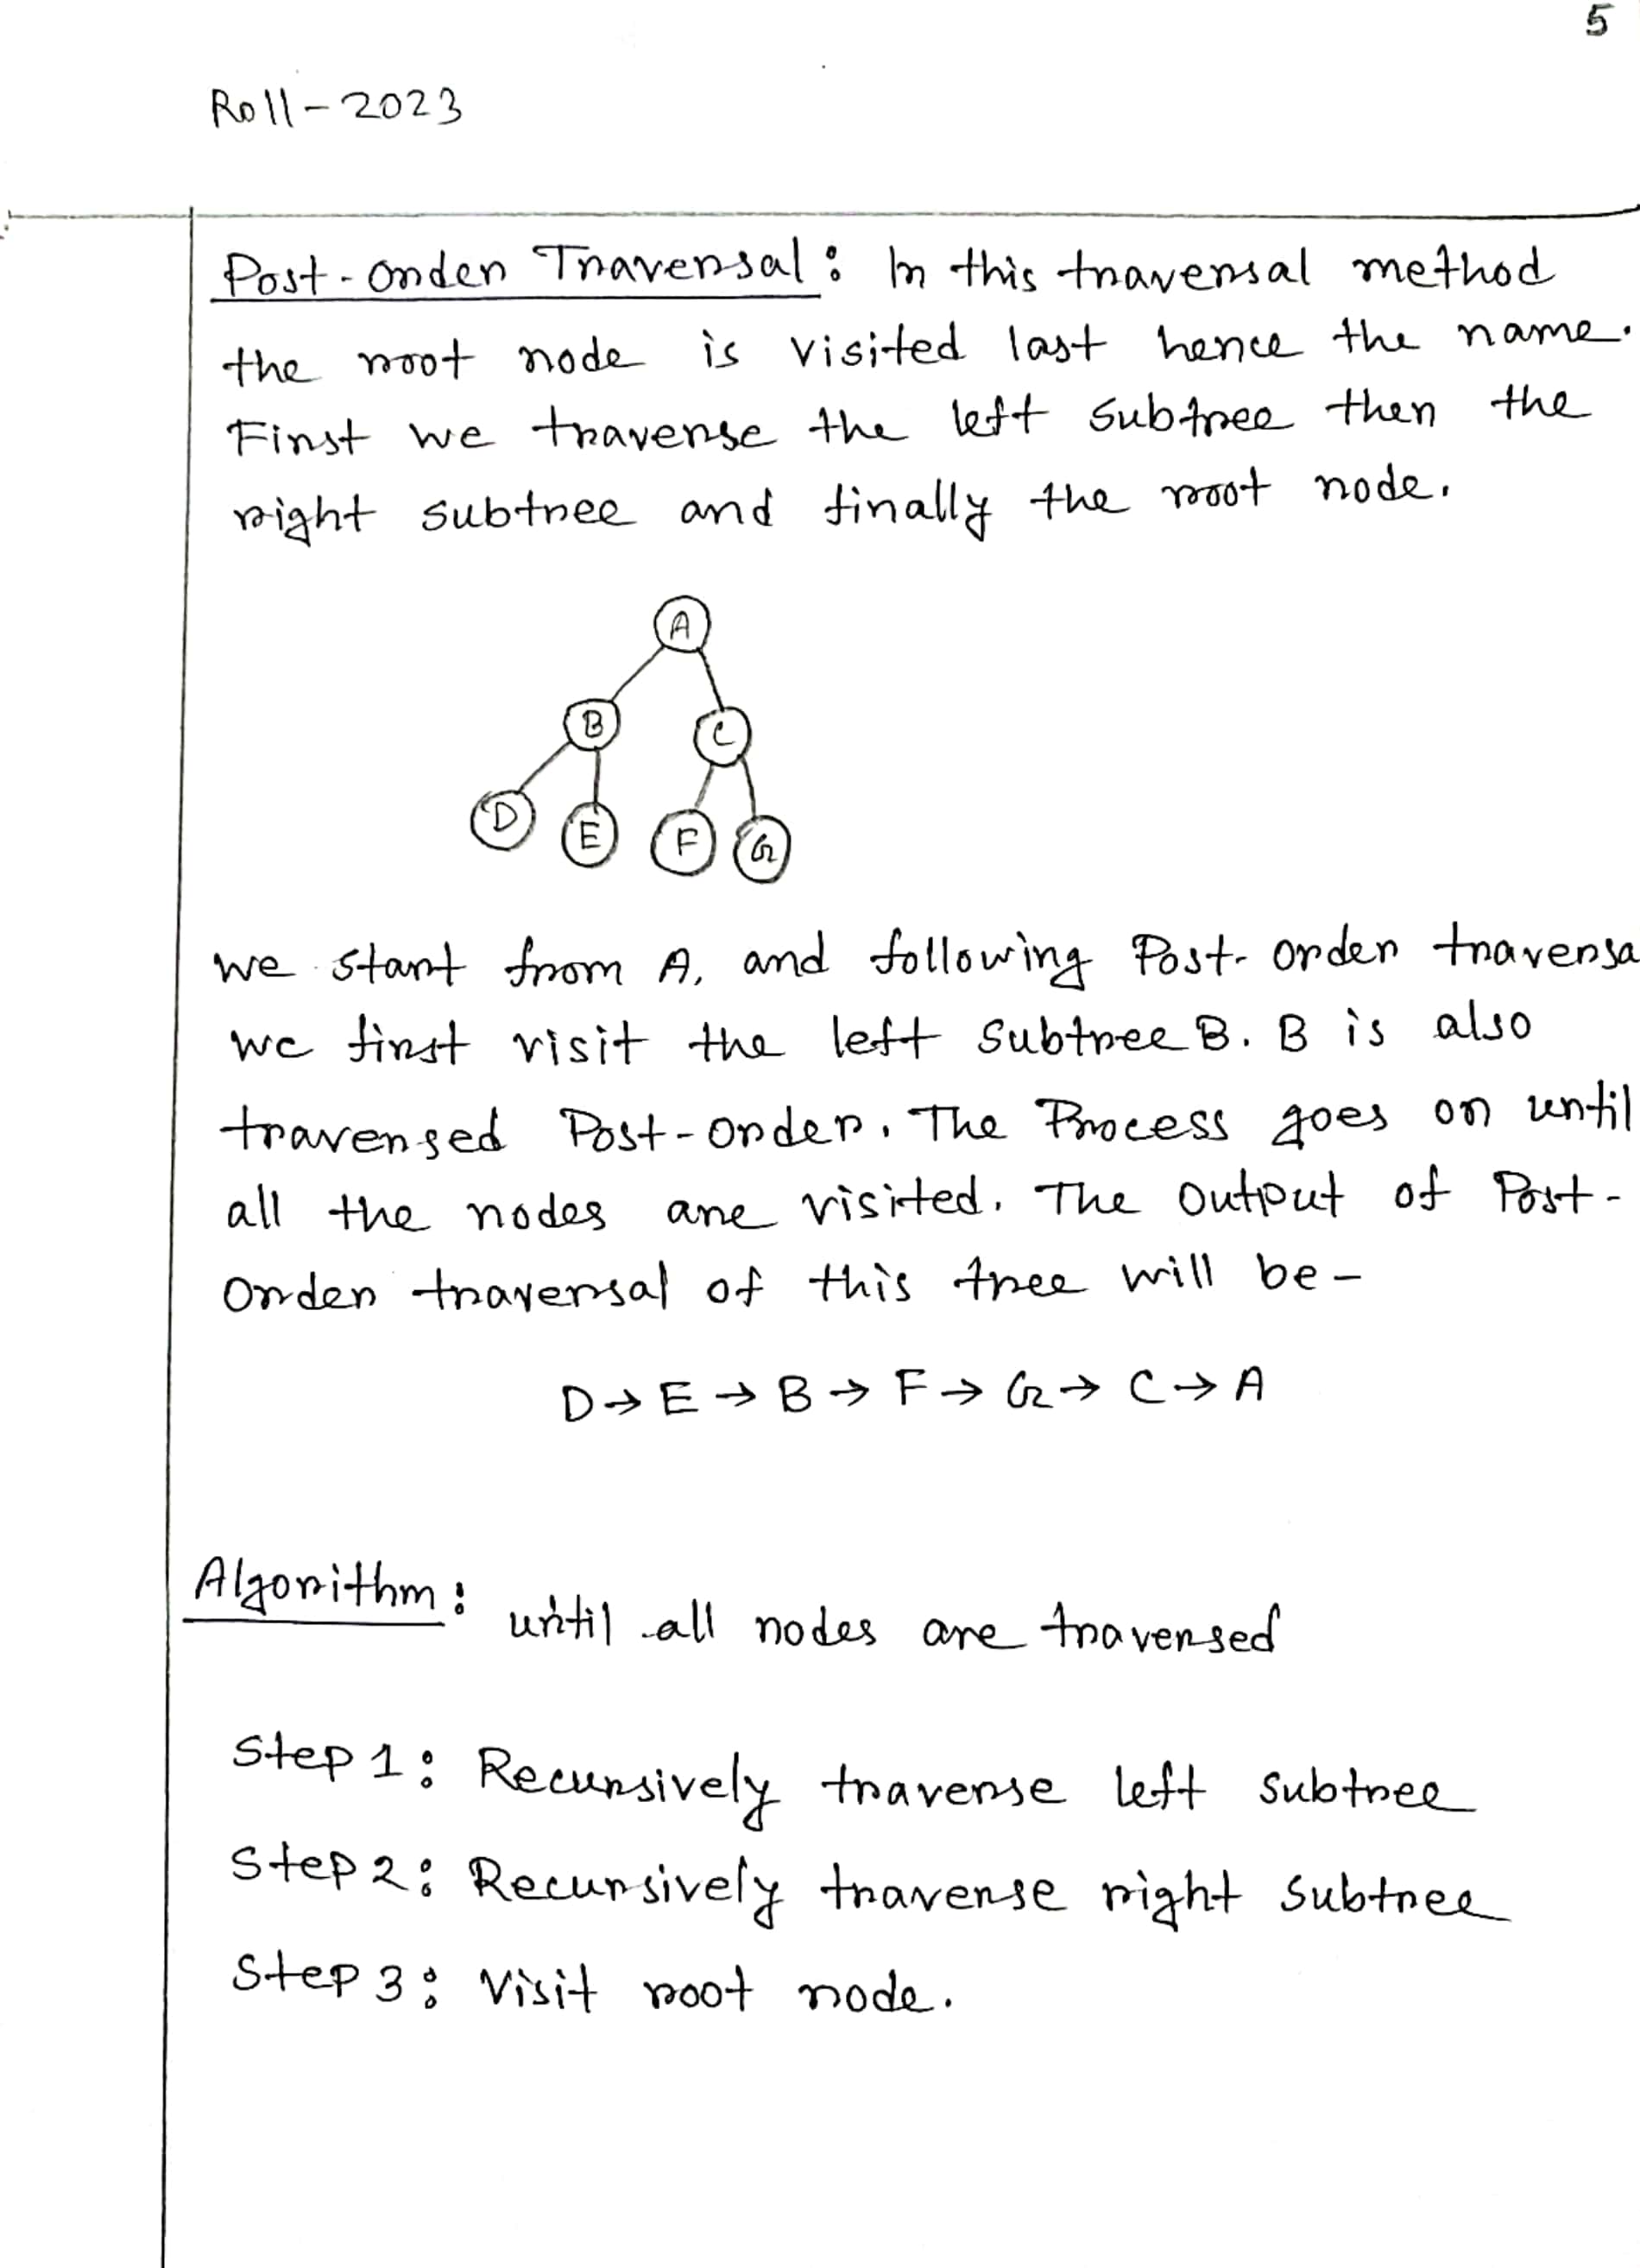 5
Roll-2023
Post-order Traversal: In this traversal method
the root node is visited last hence the name.
First we traverse the left subtree then the
right subtree and finally the root node.
A
B
C
D
E
F
G
we start from A, and following Post-order traversa
we first visit the left subtree B. B is also
traversed Post-order. The Process goes on until
all the nodes are visited. The output of Post-
order traversal of this tree will be-
D→E→B→F→G→C→A
Algorithm: until all nodes are traversed
Step 1: Recursively traverse left subtree
Step 2: Recursively traverse right subtree
Step 3: Visit root node.